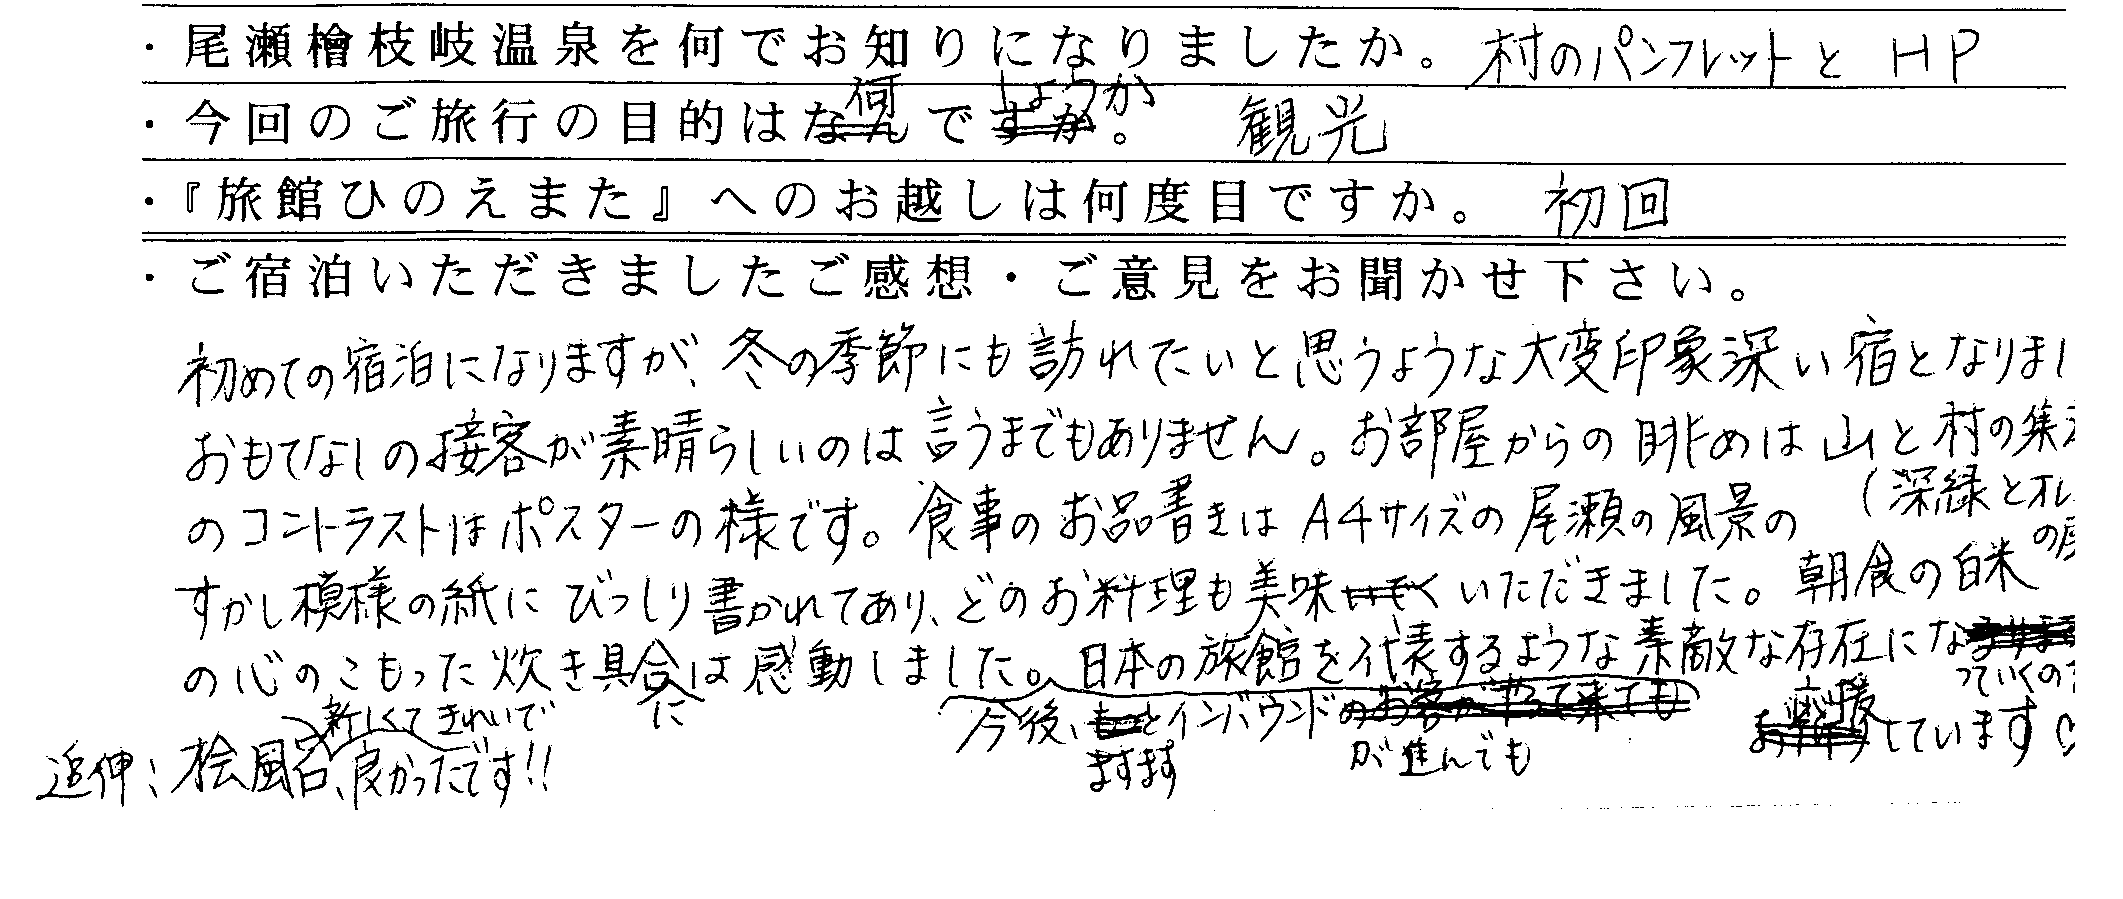 ・尾瀬檜枝岐温泉を何でお知りになりましたか。 村のパンフレットと HP
・今回のご旅行の目的は何でしょうか。 観光
・『旅館ひのえまた』へのお越しは何度目ですか。 初回
・ご宿泊いただきましたご感想・ご意見をお聞かせ下さい。
初めての宿泊になりますが、冬の季節にも訪れたいと思うような大変印象深い宿となりまし
おもてなしの接客が素晴らしいのは言うまでもありません。お部屋からの眺めは山と村の集
(深緑とオレ
のコントラストはポスターの様です。食事のお品書きは A4サイズの尾瀬の風景の
の
すかし模様の紙にびっしり書かれてあり、どのお料理も美味いただきました。朝食の白米
の心のこもった炊き具合には感動しました。日本の旅館を代表するような素敵な存在にな
っていくの
今後、ますますインバウンドが進んでも
応援しています
追伸：桧風呂、新しくてきれいで良かったです!!